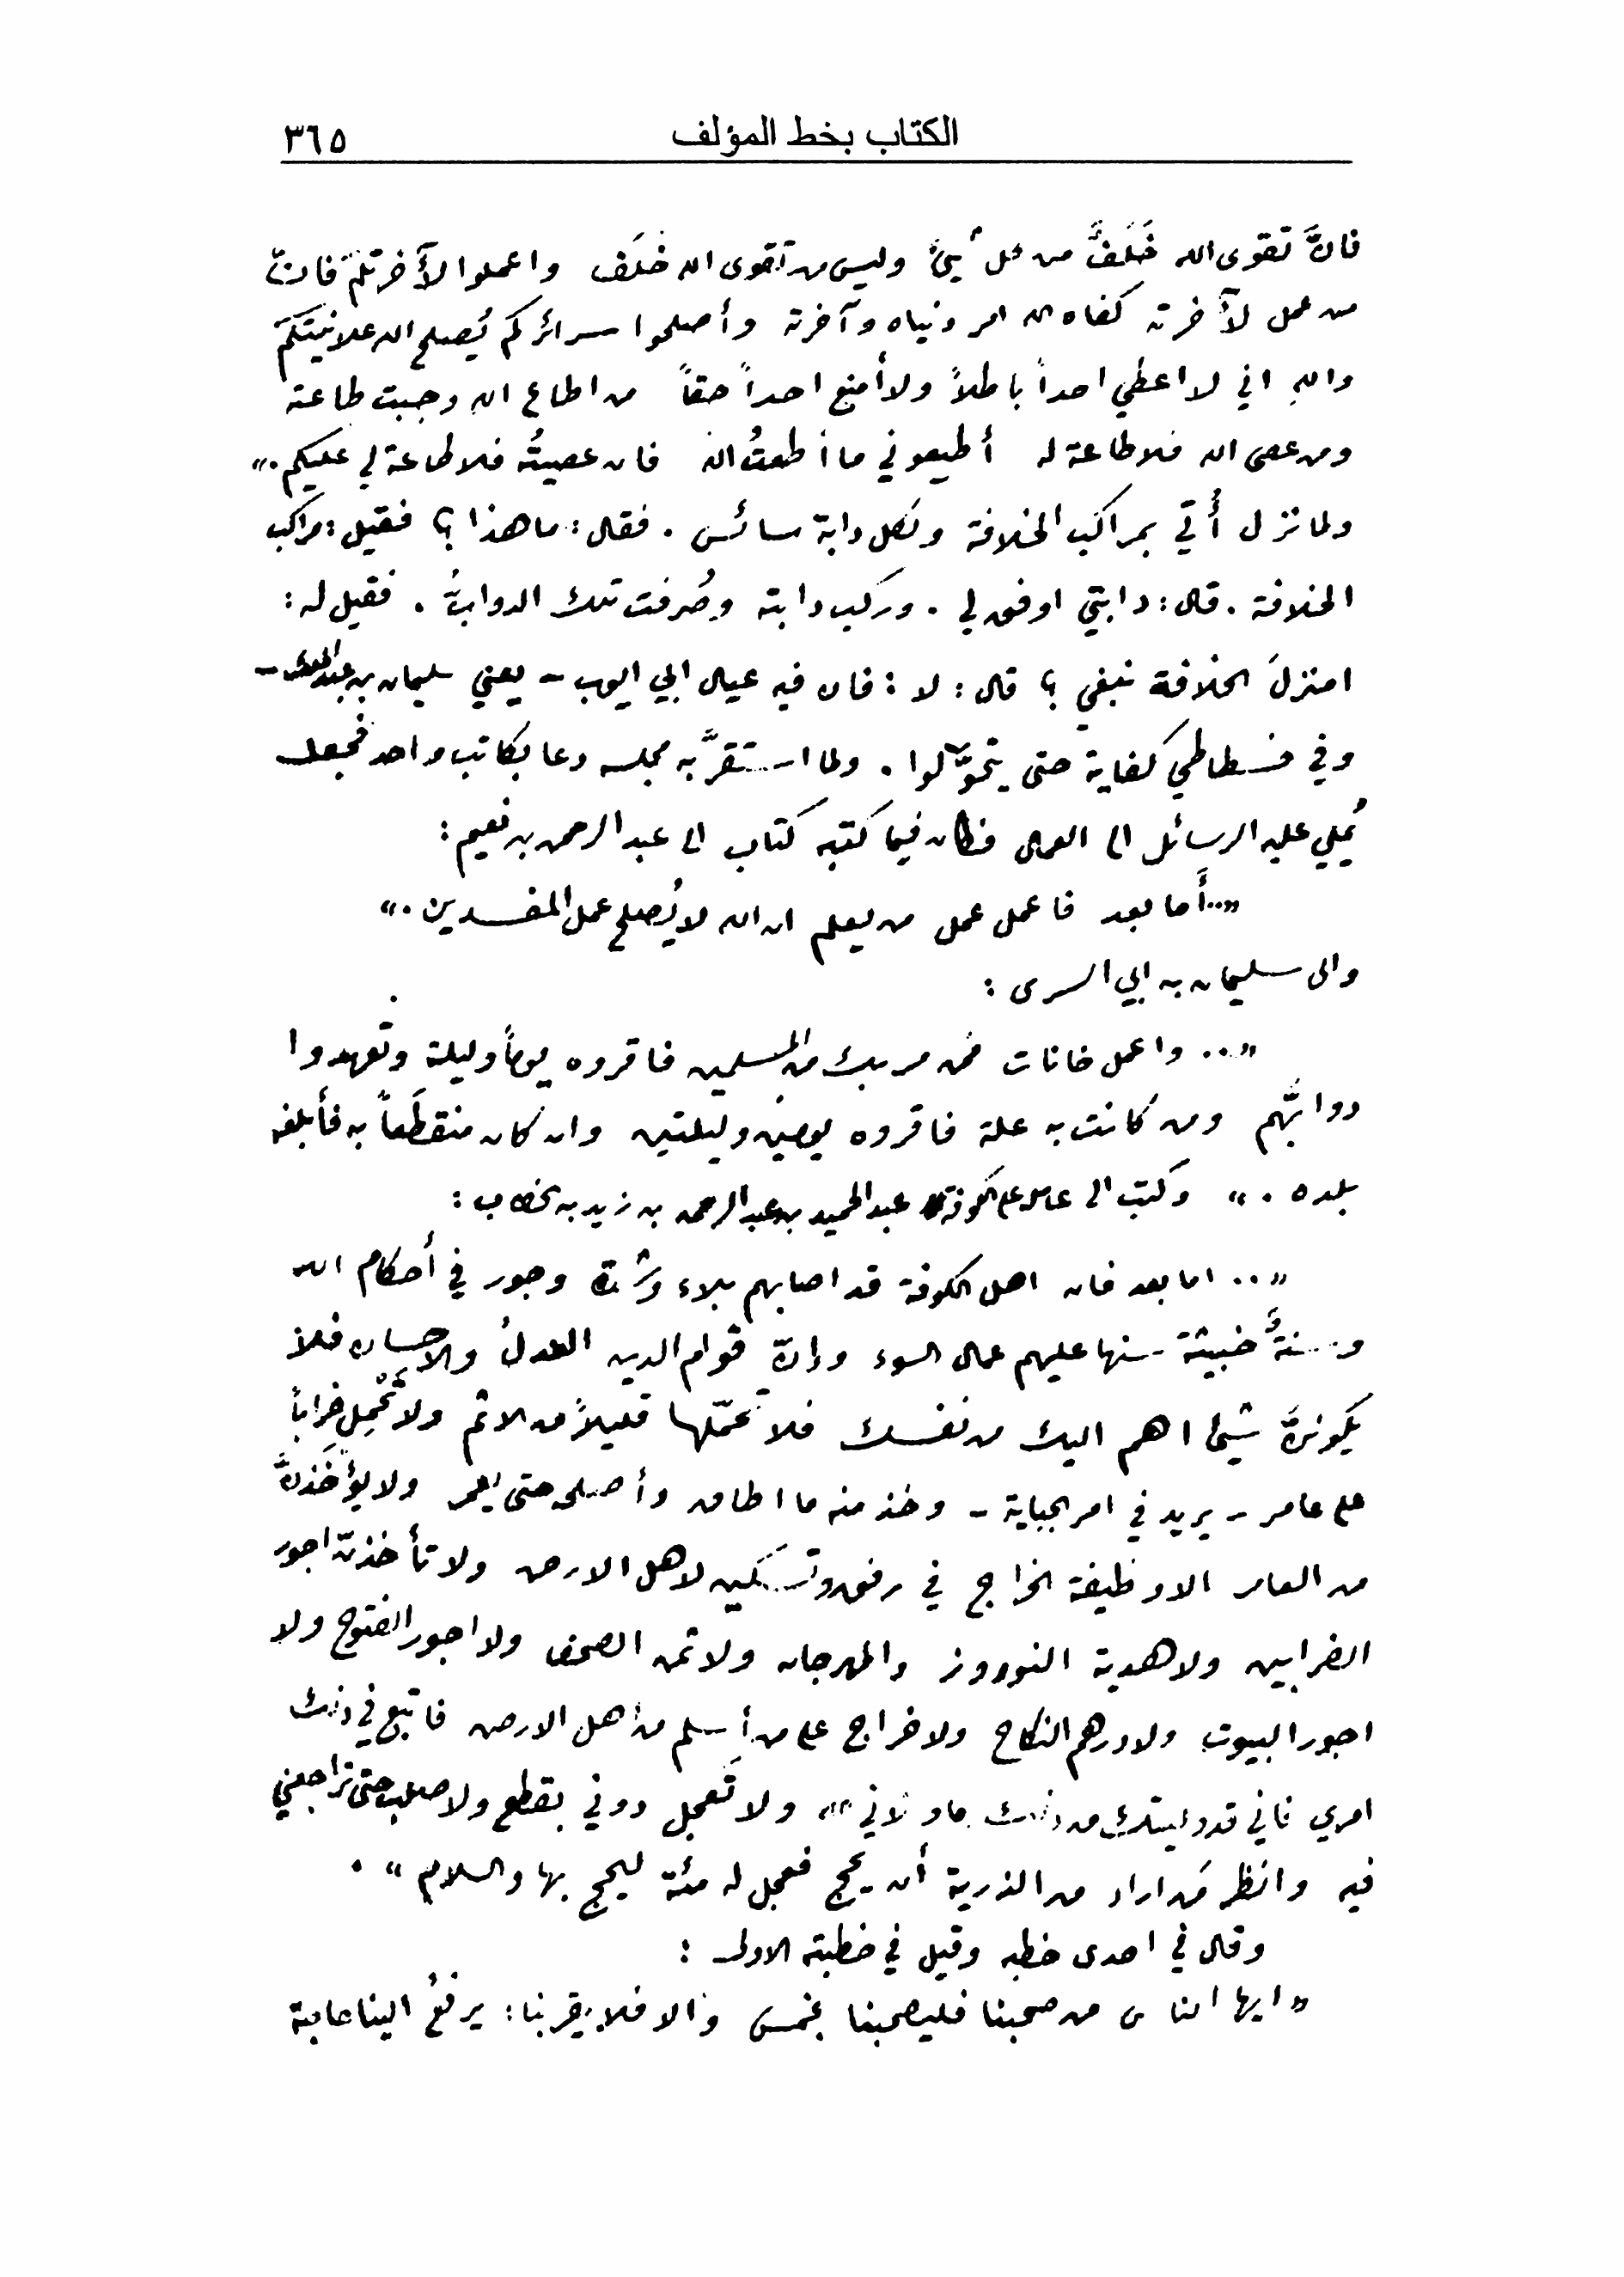 الكتاب بخط المؤلف ٣٦٥
فانَّ تقوى الله خَلَفٌ من كل شيءٍ وليس من تقوى الله خلَف واعملوا لآخرتكم فانّ
من عمل لآخرته كفاه الله امر دنياه وآخرته وأصلحوا سرائركم يُصلح الله علانيتَكم
واللهِ اني لا اعطي احداً باطلاً ولا أمنع احداً حقاً من اطاع الله وجبت طاعته
ومن عصى الله فلا طاعة له أطيعوني ما أطعتُ الله فان عصيتُه فلا طاعة لي عليكم.»
ولما نزل أُتي بمراكب الخلافة ولكل دابة سائس. فقال: ما هذا؟ فقيل: مراكب
الخلافة. قال: دابتي اوفق لي. وركب دابته وصُرفت تلك الدوابُّ. فقيل له:
امنزلَ الخلافة تبغي؟ قال: لا: فان فيه عيال ابي ايوب - يعني سليمان بن عبد الملك -
وفي فسطاطي كفاية حتى يتحوَّلوا. ولما استقرَّ به مجلسه دعا بكاتب واحد فجعل
يُملي عليه الرسائل الى العمال فكان فيما كتبه كتاب الى عبد الرحمن بن نعيم:
«..أَما بعد فاعمل عمل من يعلم ان الله لا يُصلح عمل المفسدين.»
والى سليمان بن ابي السرى:
«.. واعمل خانات فمن مر بك من المسلمين فاقروه يوماً وليلة وتعهدوا
دوابَّهم ومن كانت به علة فاقروه يومين وليلتين وان كان منقطَعاً به فأبلغه
بلده.» وكتب الى عامله على الكوفة عبد الحميد بن عبد الرحمن بن زيد بن الخطاب:
«.. اما بعد فان اهل الكوفة قد اصابهم بلاء وشدة وجور في أحكام الله
وسنةٌ خبيثة سنها عليهم عمال السوء وإنّ قوام الدين العدلُ والاحسان فلا
يكوننَّ شيئ اهم اليك من نفسك فلا تحمّلها قليلاً من الاثم ولا تَحْمِل خراباً
على عامر - يريد في امر الجباية - وخذ منه ما اطاق وأصلحه حتى يعمر ولا يؤخَذنَّ
من العامر الا وظيفة الخراج في رفق وتسكين لاهل الارض ولا تأخذنّ اجور
الضرابين ولا هدية النوروز والمهرجان ولا ثمن الصحف ولا اجور الفتوح ولا
اجور البيوت ولا درهم النكاح ولا خراج على من أسلم من أهل الارض فاتبع في ذلك
امري فاني قد وليتك من ذلك ما ولاني الله ولا تَعجل دوني بقطع ولا صلب حتى تراجعني
فيه وانظر مَن اراد من الذرية أن يحج فعجل له مئة ليحج بها والسلام».
وقال في احدى خطبه وقيل في خطبته الاولى:
«ايها الناس من صحبنا فليصحبنا بخمس والا فلا يقربنا: يرفعُ الينا حاجة